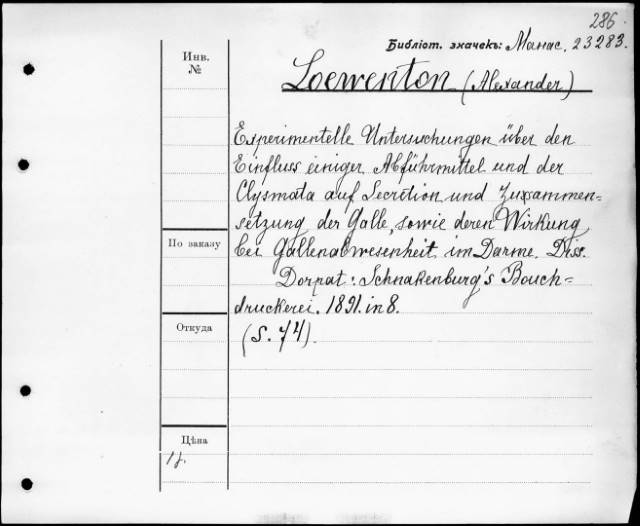 286
Библіот. значекъ: Манас. 23283.
Инв.
№
Loewenton (Alexander)
Experimentelle Untersuchungen über den
Einfluss einiger Abführmittel und der
Clysmata auf Secretion und Zusammen=
setzung der Galle, sowie deren Wirkung
По заказу
bei Gallenabwesenheit im Darme. Diss.
Dorpat: Schnakenburg's Bouch=
druckerei. 1891. in 8.
Откуда
(S. 74).
Цѣна